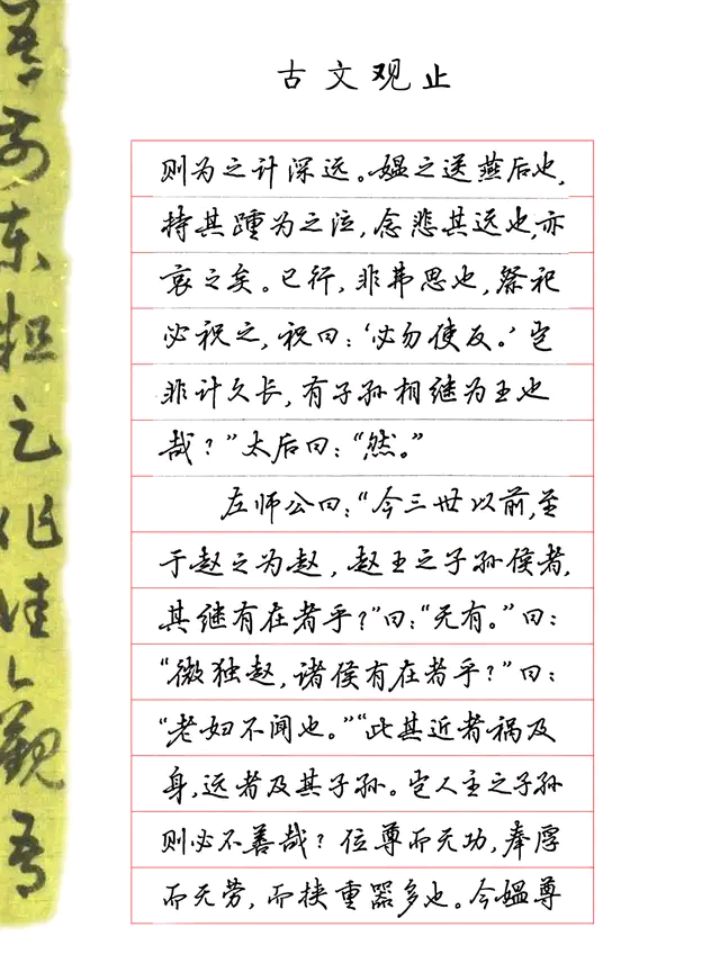 古文观止
则为之计深远。媪之送燕后也,
持其踵为之泣,念悲其远也,亦
哀之矣。已行,非弗思也,祭祀
必祝之,祝曰:‘必勿使反。’岂
非计久长,有子孙相继为王也
哉?”太后曰:“然。”
左师公曰:“今三世以前,至
于赵之为赵,赵王之子孙侯者,
其继有在者乎?”曰:“无有。”曰:
“微独赵,诸侯有在者乎?”曰:
“老妇不闻也。”“此其近者祸及
身,远者及其子孙。岂人主之子孙
则必不善哉?位尊而无功,奉厚
而无劳,而挟重器多也。今媪尊